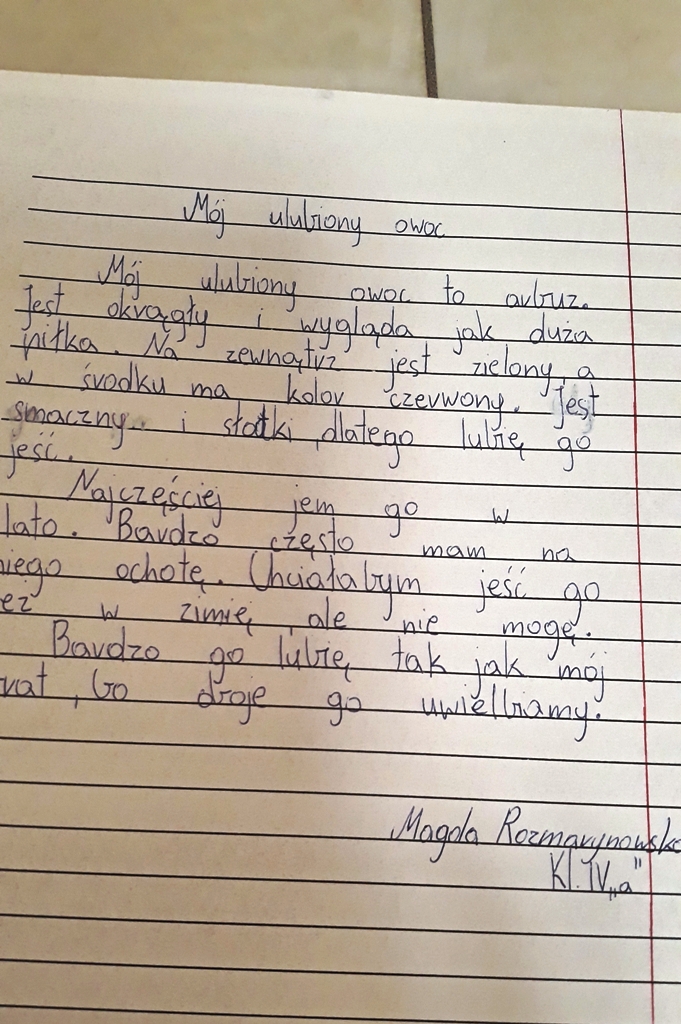 Mój ulubiony owoc
Mój ulubiony owoc to arbuz.
Jest okrągły i wygląda jak duża
piłka. Na zewnątrz jest zielony, a
w środku ma kolor czerwony. Jest
smaczny i słotki, dlatego lubię go
jeść.
Najczęściej jem go w
lato. Bardzo często mam na
niego ochotę. Chciałabym jeść go
eż w zimię, ale nie mogę.
Bardzo go lubię, tak jak mój
rat, bo droje go uwielbiamy.
Magda Rozmarynowsk
Kl. IV „a"